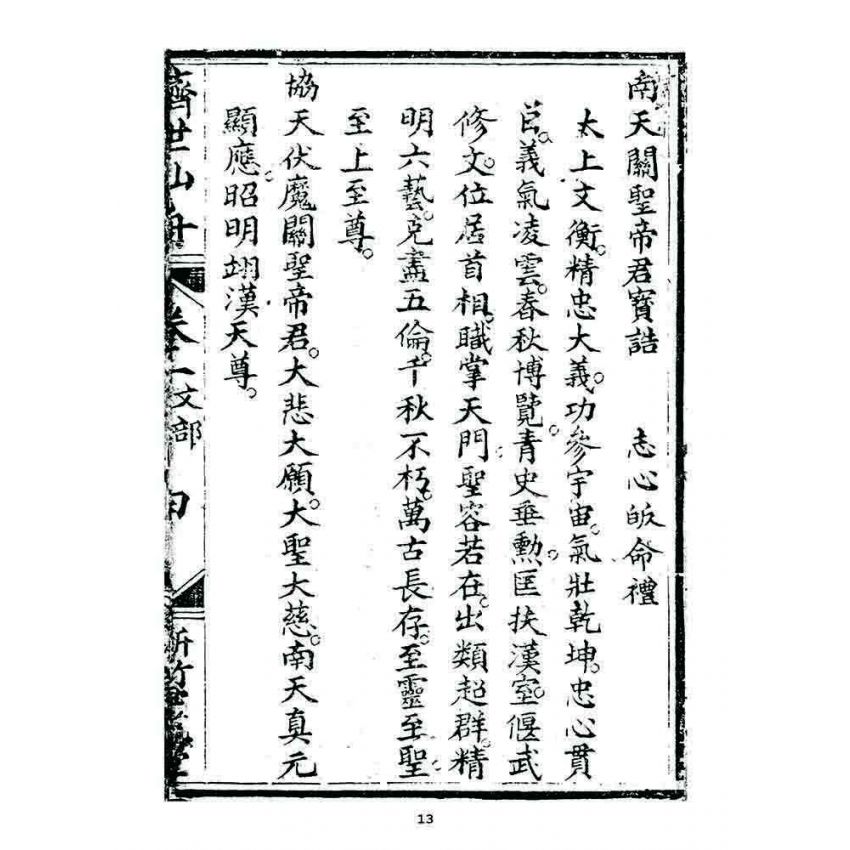 南天關聖帝君寶誥　志心皈命禮
太上文衡。精忠大義。功參宇宙。氣壯乾坤。忠心貫
日。義氣凌雲。春秋博覽。青史垂勲。匡扶漢室。偃武
修文。位居首相。職掌天門。聖容若在。出類超群。精
明六藝。克盡五倫。千秋不朽。萬古長存。至靈至聖。
至上至尊。
協天伏魔關聖帝君。大悲大願。大聖大慈。南天真元
顯應。昭明翊漢天尊。
濟世仙丹　卷一文部　新竹
13